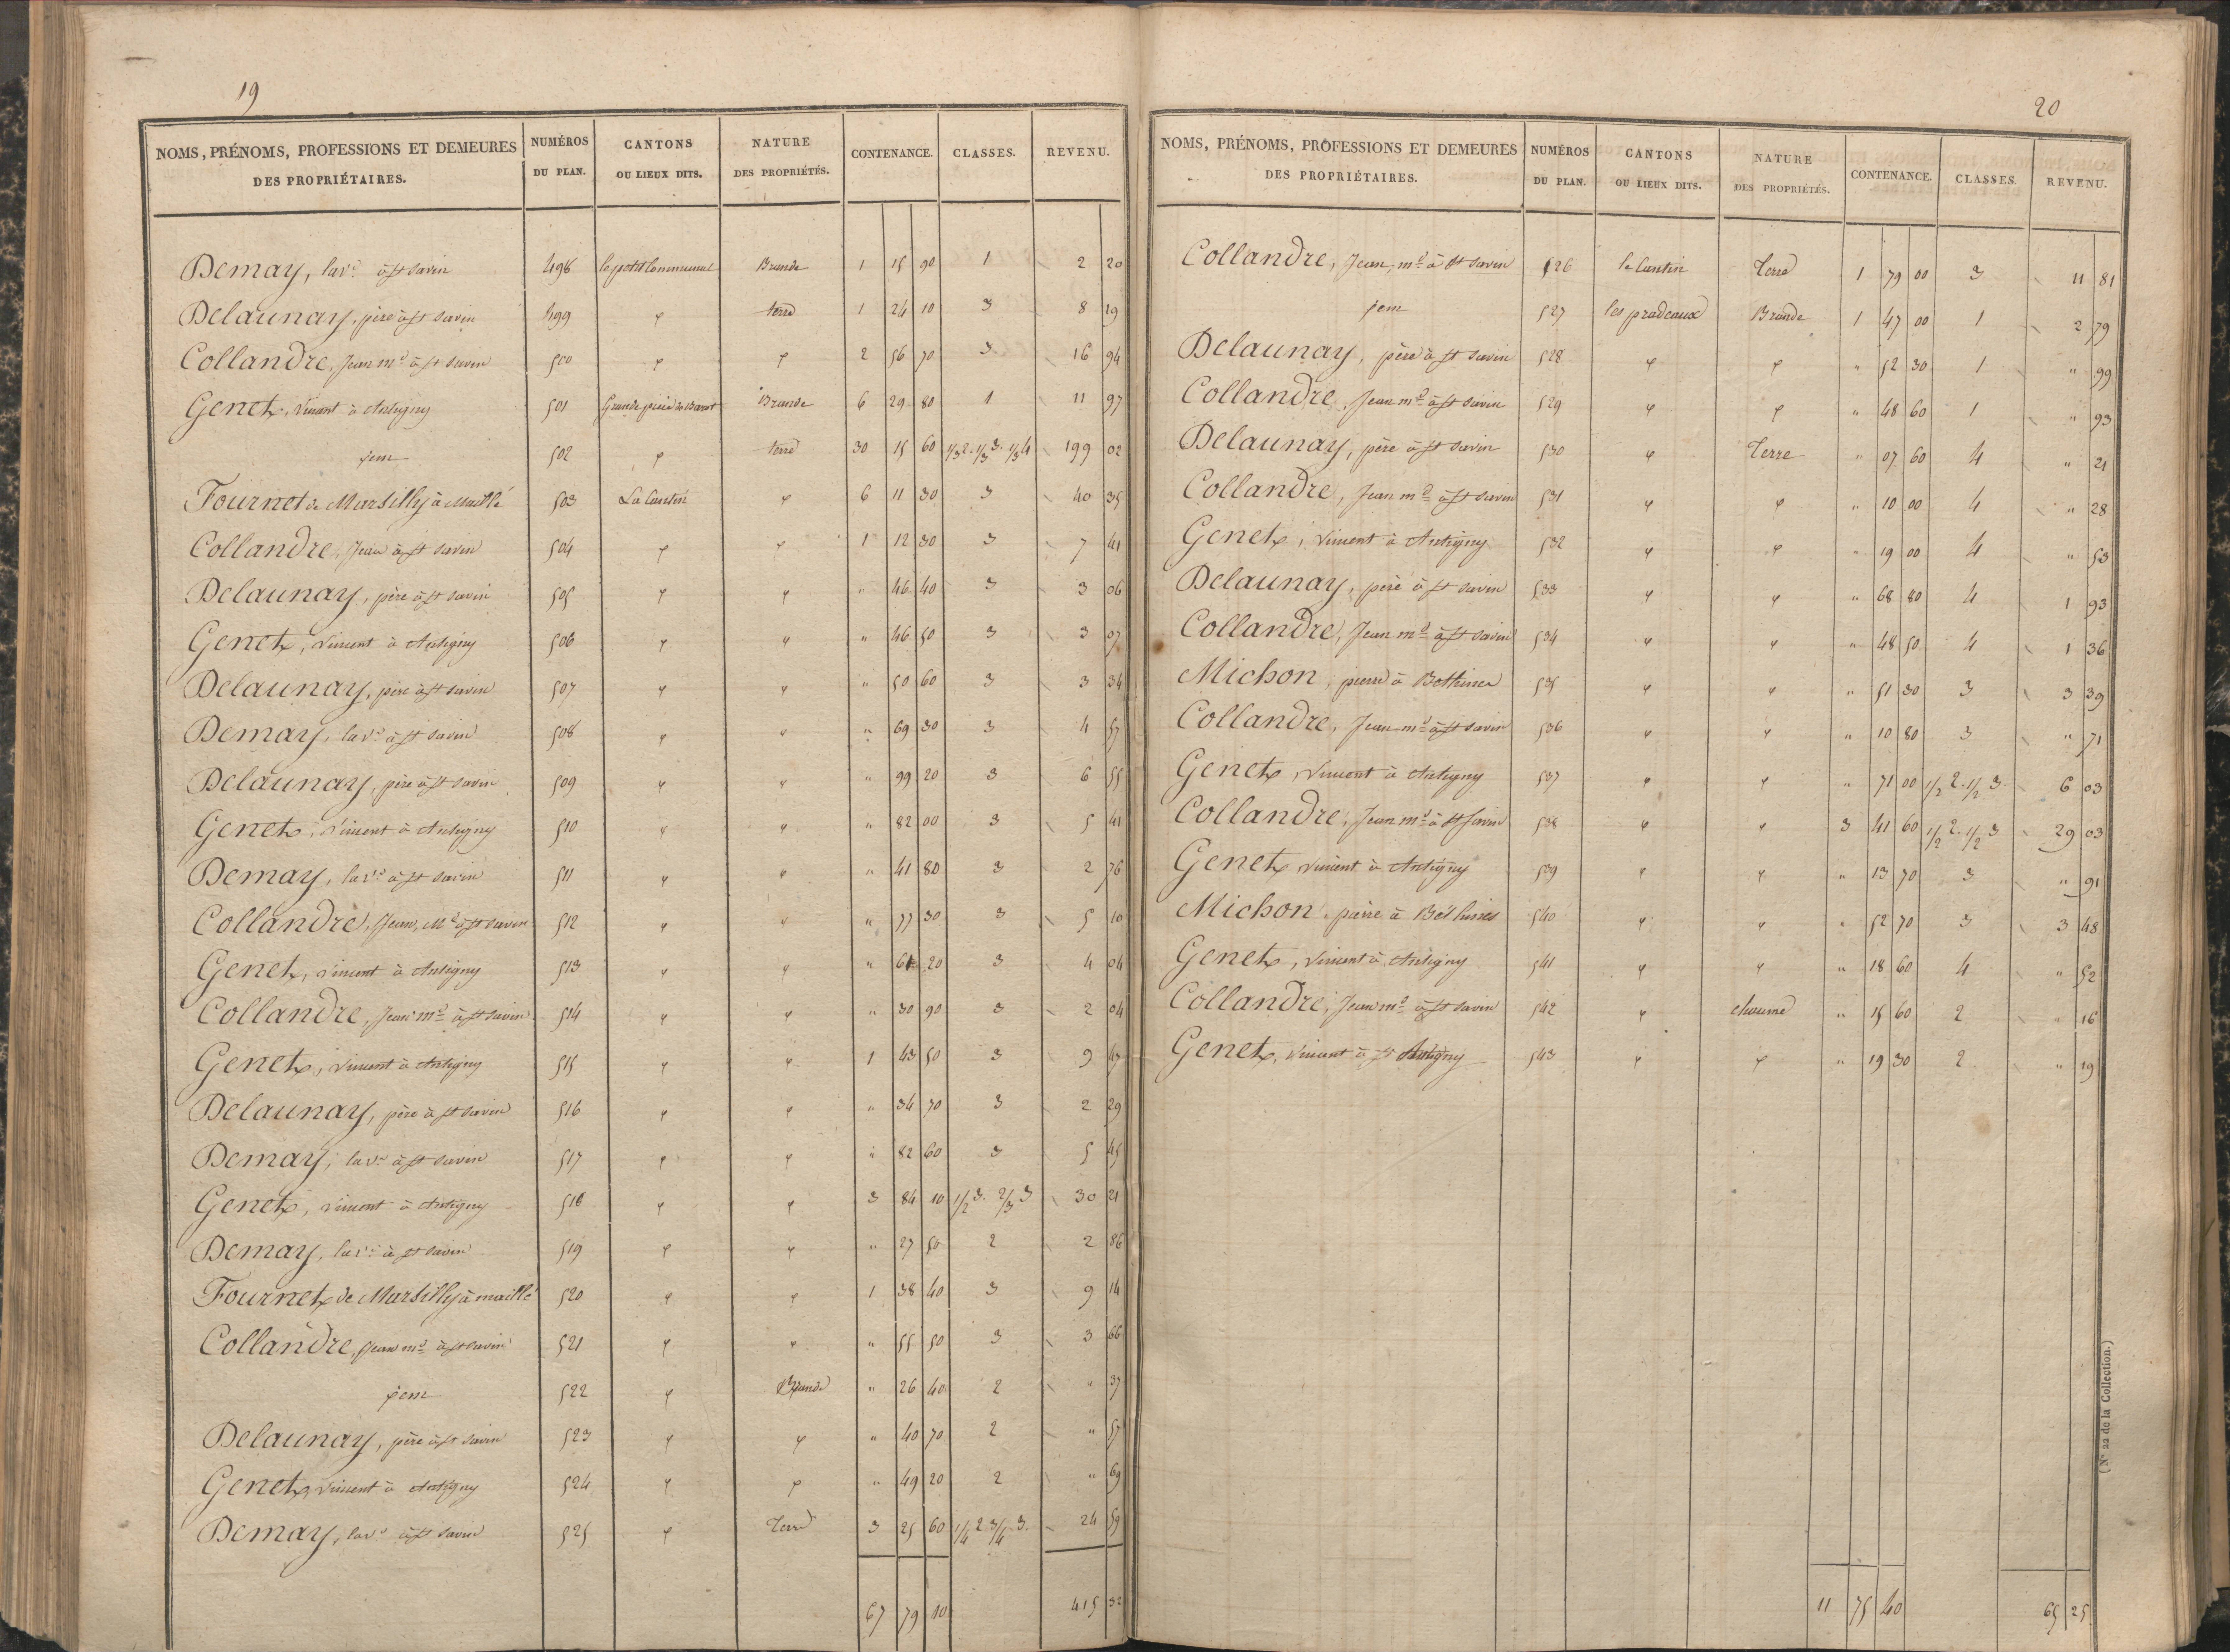 19
NOMS, PRÉNOMS, PROFESSIONS ET DEMEURES DES PROPRIÉTAIRES. NUMÉROS DU PLAN. CANTONS OU LIEUX DITS. NATURE DES PROPRIÉTÉS. CONTENANCE. CLASSES. REVENU.
Demay, la ve à st Savin 498 le petit Communal Brande 1 15 90 1 2 20
Delaunay, père à st Savin 499 φ terre 1 24 10 3 8 19
Collandre, Jean md à st Savin 500 φ φ 2 56 70 3 16 94
Genet, Vincent à Antigny 501 Grande pièce Brande 6 29 80 1 11 97
φem 502 φ terre 30 15 60 1/3 2. 1/3 3. 1/3 4 199 02
Fournet de Marsilly à Maillé 503 La Cantin φ 6 11 30 3 40 35
Collandre, Jean à st Savin 504 φ φ 1 12 30 3 7 41
Delaunay, père à st Savin 505 φ φ " 46 40 3 3 06
Genet, Vincent à Antigny 506 φ φ " 46 50 3 3 07
Delaunay, père à st Savin 507 φ φ " 50 60 3 3 34
Demay, la ve à st Savin 508 φ φ " 69 30 3 4 57
Delaunay, père à st Savin 509 φ φ " 99 20 3 6 55
Genet, Vincent à Antigny 510 φ φ " 82 00 3 5 41
Demay, la ve à st Savin 511 φ φ " 41 80 3 2 76
Collandre, Jean, Md à st Savin 512 φ φ " 77 30 3 5 10
Genet, Vincent à Antigny 513 φ φ " 61 20 3 4 04
Collandre, Jean md à st Savin 514 φ φ " 30 90 3 2 04
Genet, Vincent à Antigny 515 φ φ 1 43 50 3 9 47
Delaunay, père à st Savin 516 φ φ " 34 70 3 2 29
Demay, la ve à st Savin 517 φ φ " 82 60 3 5 45
Genet, Vincent à Antigny 518 φ φ 3 84 10 1/2 3. 2/3 3 30 21
Demay, la ve à st Savin 519 φ φ " 27 50 2 2 86
Fournet de Marsilly à maillé 520 φ φ 1 38 40 3 9 14
Collandre, Jean md à st Savin 521 φ φ " 55 50 3 3 66
φem 522 φ Brande " 26 40 2 " 37
Delaunay, père à st Savin 523 φ φ " 40 70 2 " 57
Genet, Vincent à Antigny 524 φ φ " 49 20 2 " 69
Demay, la ve à st Savin 525 φ Terre 3 25 60 1/4 2. 3/4 3. 24 59
67 79 10 415 32
20
NOMS, PRÉNOMS, PROFESSIONS ET DEMEURES DES PROPRIÉTAIRES. NUMÉROS DU PLAN. CANTONS OU LIEUX DITS. NATURE DES PROPRIÉTÉS. CONTENANCE. CLASSES. REVENU.
Collandre, Jean, md à St Savin 526 la Cantin Terre 1 79 00 3 11 81
φem 527 les pradeaux Brande 1 47 00 1 2 79
Delaunay, père à st Savin 528 φ φ " 52 30 1 " 99
Collandre, Jean md à st Savin 529 φ φ " 48 60 1 " 93
Delaunay, père à st Savin 530 φ Terre " 07 60 4 " 21
Collandre, Jean md à st Savin 531 φ φ " 10 00 4 " 28
Genet, Vincent à Antigny 532 φ φ " 19 00 4 " 53
Delaunay, père à st Savin 533 φ φ " 68 80 4 1 93
Collandre, Jean md à st Savin 534 φ φ " 48 50 4 1 36
Michon, pierre à 535 φ φ " 51 30 3 3 39
Collandre, Jean md à st Savin 536 φ φ " 10 80 3 " 71
Genet, Vincent à Antigny 537 φ φ " 71 00 1/2 2. 1/2 3. 6 03
Collandre, Jean md à St Savin 538 φ φ 3 41 60 1/2 2. 1/2 3 29 03
Genet, Vincent à Antigny 539 φ φ " 13 70 3 " 91
Michon, pierre à 540 φ φ " 52 70 3 3 48
Genet, Vincent à Antigny 541 φ φ " 18 60 4 " 52
Collandre, Jean md à st Savin 542 φ chaume " 15 60 2 " 16
Genet, Vincent à Antigny 543 φ φ " 19 30 2 " 19
11 75 40 65 25
(N° 22 de la Collection.)